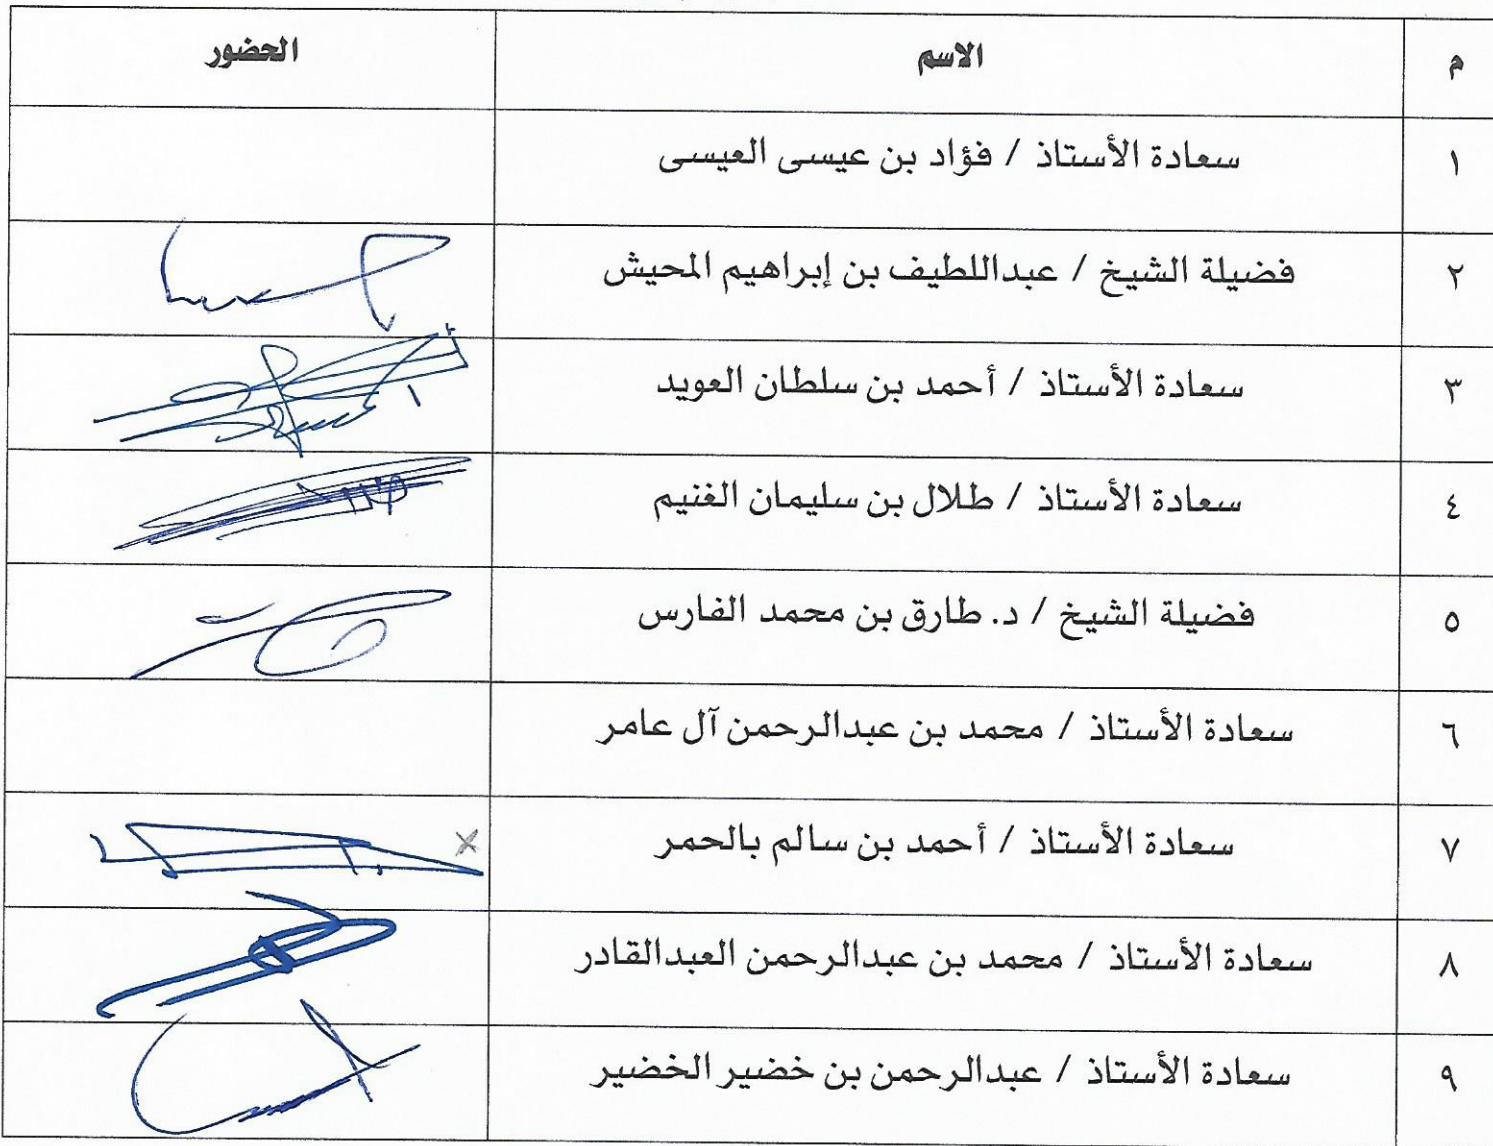 م الاسم الحضور
١ سعادة الأستاذ / فؤاد بن عيسى العيسى
٢ فضيلة الشيخ / عبداللطيف بن إبراهيم المحيش
٣ سعادة الأستاذ / أحمد بن سلطان العويد
٤ سعادة الأستاذ / طلال بن سليمان الغنيم
٥ فضيلة الشيخ / د. طارق بن محمد الفارس
٦ سعادة الأستاذ / محمد بن عبدالرحمن آل عامر
٧ سعادة الأستاذ / أحمد بن سالم بالحمر
٨ سعادة الأستاذ / محمد بن عبدالرحمن العبدالقادر
٩ سعادة الأستاذ / عبدالرحمن بن خضير الخضير